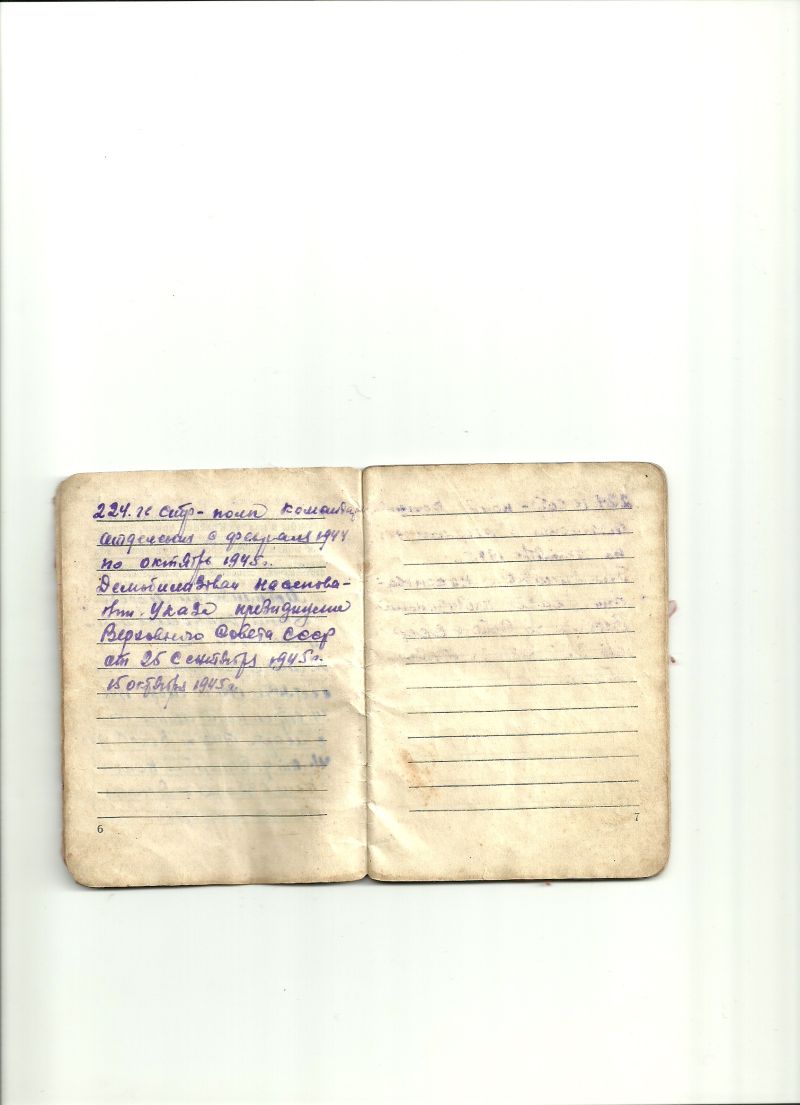 224. гв стр- полк командир
отделения с февраля 1944
по октябрь 1945г.
Демобилизован на основа-
нии. Указа президиума
Верховного Совета СССР
от 25 Сентября 1945г.
15 октября 1945г.
6
7